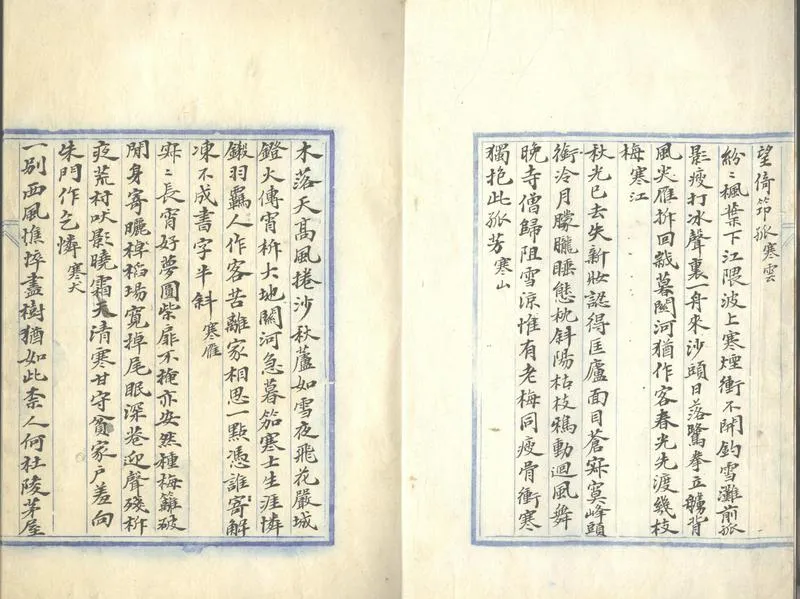 望倚筇孤寒雲
紛〻楓葉下江隈波上寒煙衝不開釣雪灘前孤
影瘦打冰聲裏一舟來沙頭日落鷺拳立鷁背
風尖雁拆回歲暮關河猶作客春光先渡幾枝
梅寒江
秋光已去失新妝認得匡廬面目蒼寂寞峰頭
銜冷月朦朧睡態枕斜陽枯枝鴉動迴風舞
晚寺僧歸阻雪涼惟有老梅同瘦骨衝寒
獨抱此孤芳寒山
木落天高風捲沙秋蘆如雪夜飛花嚴城
鐙火傳宵柝大地關河急暮笳寒士生涯憐
鎩羽羈人作客苦離家相思一點憑誰寄解
凍不成書字半斜寒雁
寂〻長宵好夢圓柴扉不掩亦安然種梅籬破
閒身寄曬稗稻場寬掉尾眠深巷迎聲殘柝
夜荒村吠影曉霜天清寒甘守貧家戶羞向
朱門作乞憐寒犬
一別西風憔悴盡樹猶如此柰人何杜陵茅屋